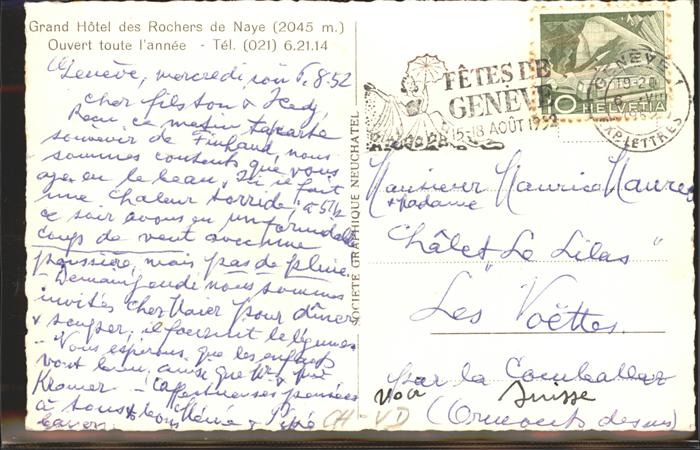 Grand Hôtel des Rochers de Naye (2045 m.)
Ouvert toute l'année - Tél. (021) 6.21.14
Genève, mercredi soir 6.8.52
Cher filston &
Reçu ce matin ta carte
souvenir de nous
sommes contents que vous
ayez eu le beau, ici il fait
une chaleur torride, à 5 1/2
ce soir avons eu un formidable
coup de vent avec une
poussière, mais pas de pluie
- Demain jeudi nous sommes
invités chez pour dîner
& souper, il
- Nous espérons que les enfants
vont bien ainsi que
Kramer - affectueuses pensées
à tous & bons Mémé & Pépé
baisers
SOCIÉTÉ GRAPHIQUE NEUCHATEL
FÊTES DE
GENÈVE
15-18 AOÛT 1952
GENÈVE 1
19-20
EXP. LETTRES
HELVETIA
Monsieur Maurice
& Madame
Châlet Le Lilas
Les Voëttes
par la Comballaz
Suisse
(Ormonts dessus)
CH-VD